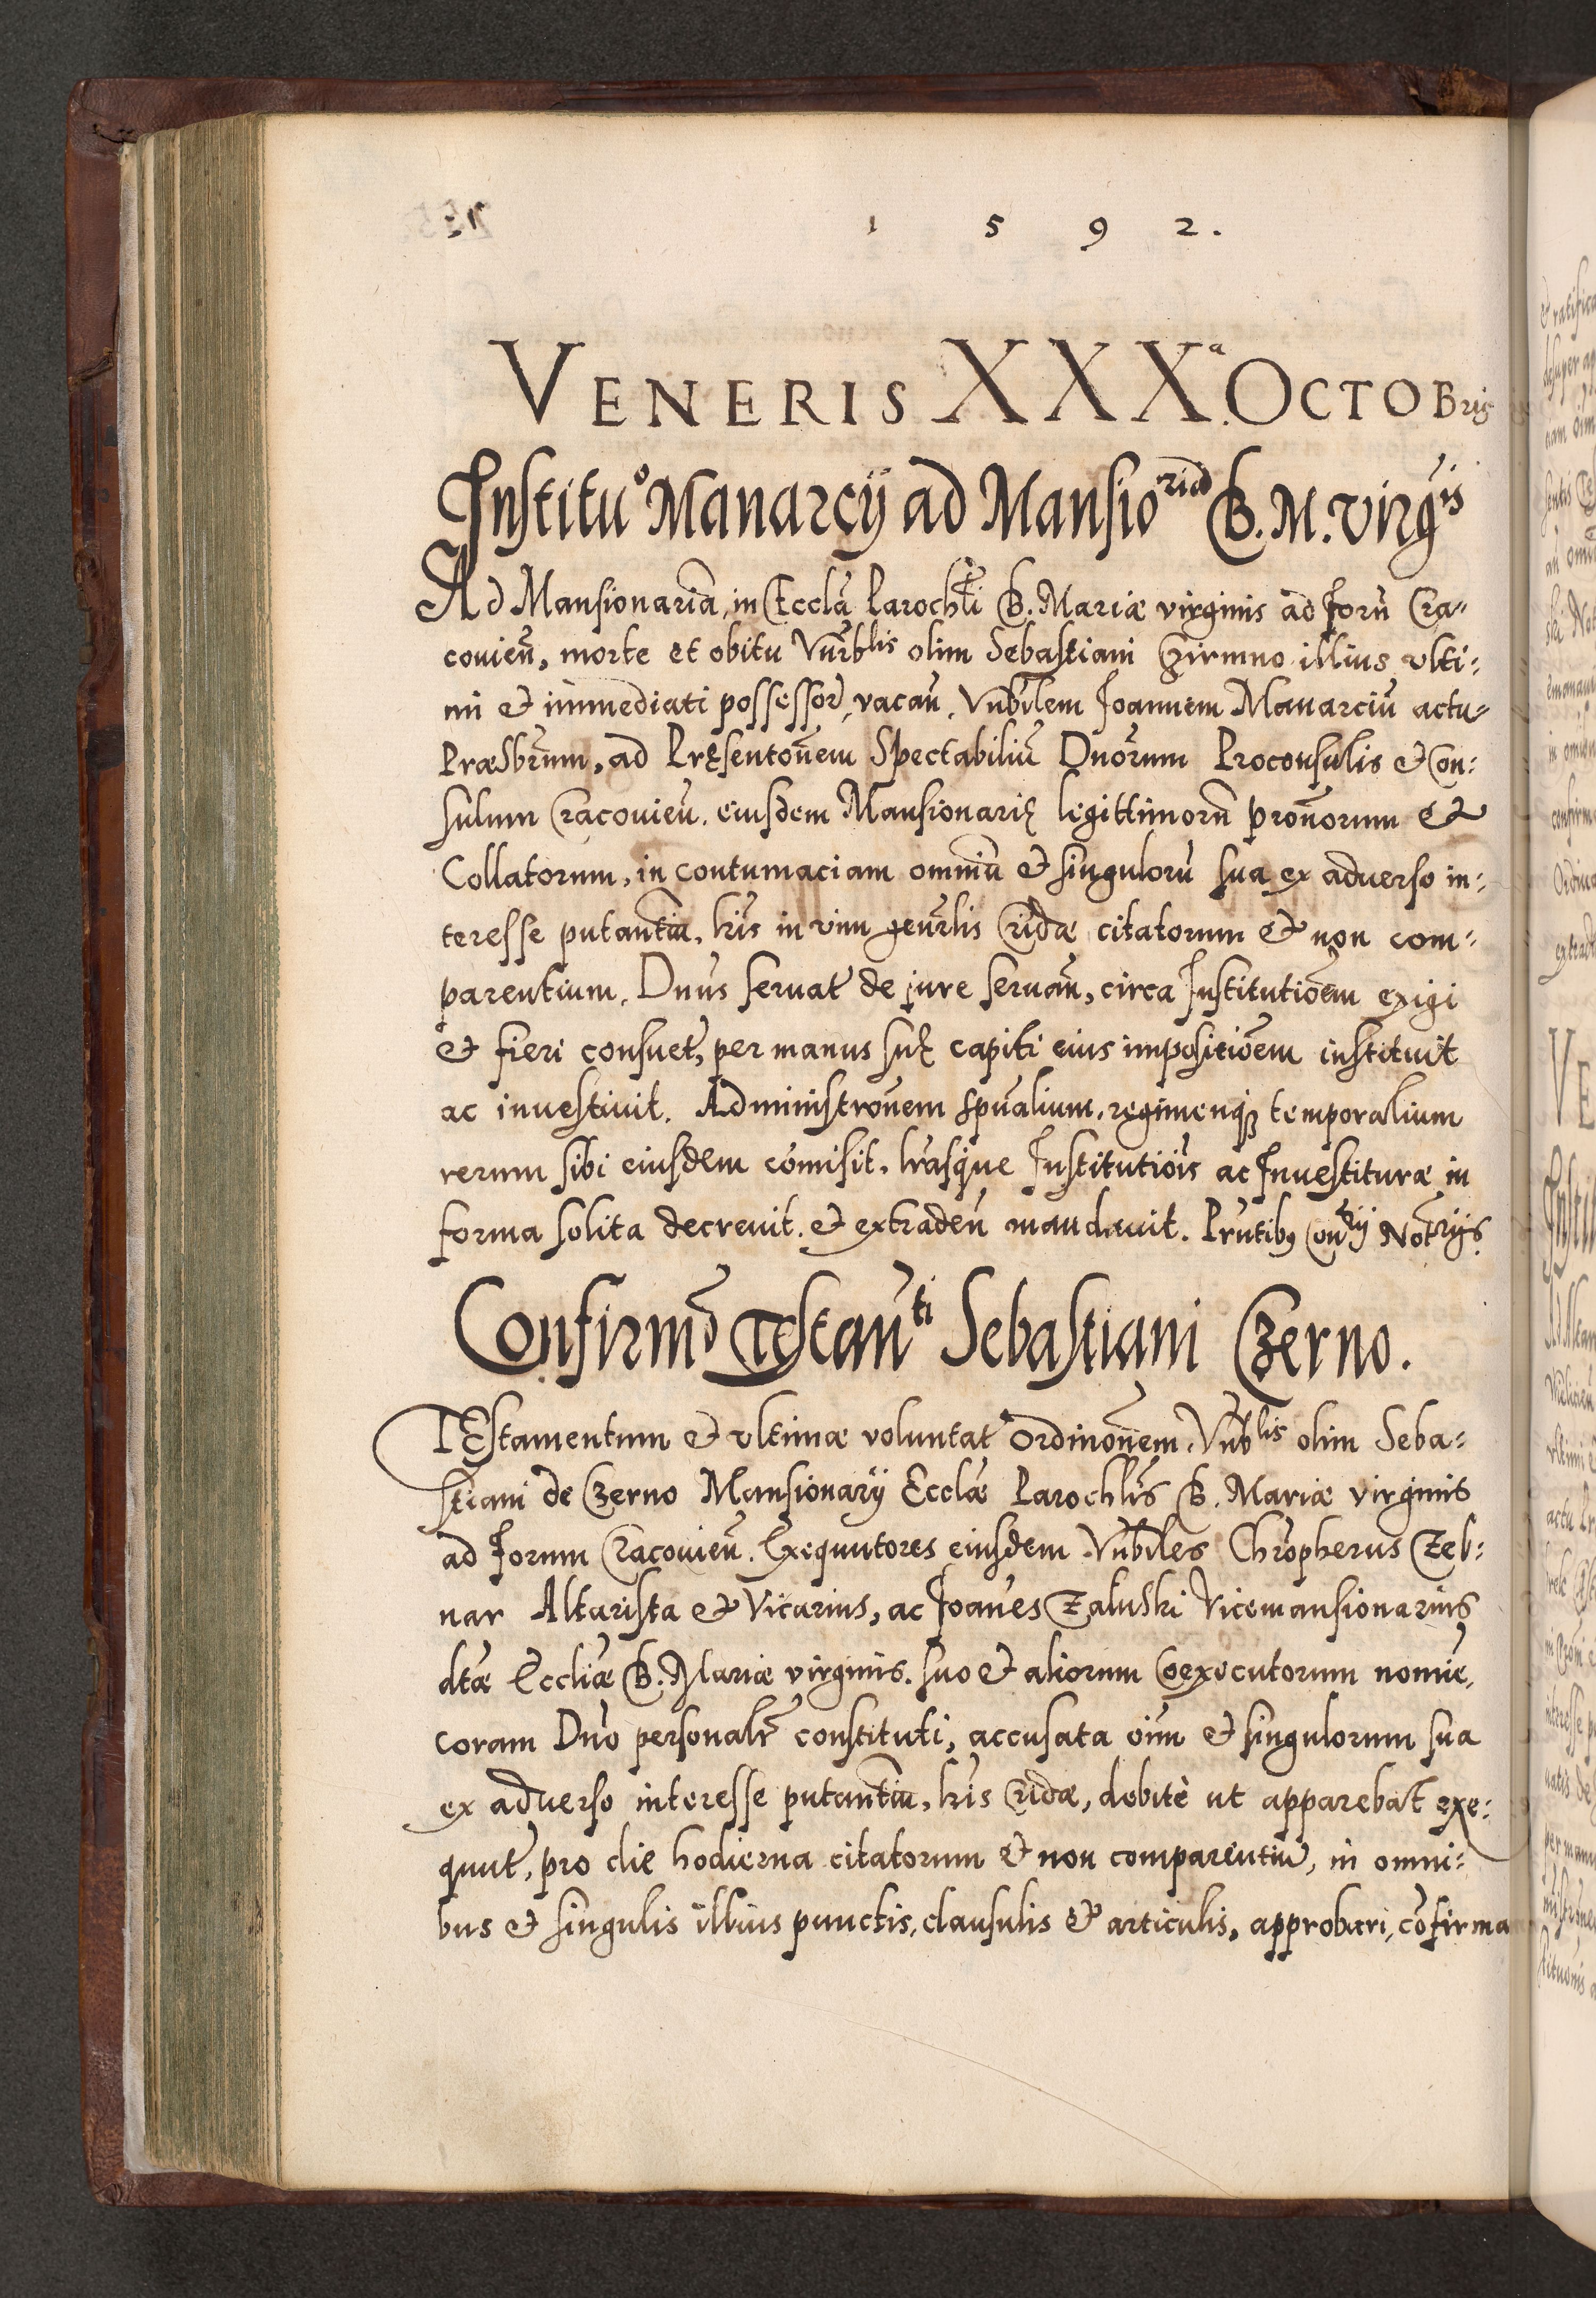 1 5 9 2.
VENERIS XXXª. OCTOBris
Institu° Manarcÿ ad Mansioriã B. M. Virgis
Ad Mansionariã, in Ecclã Parochli B. Mariæ virginis ad forũ Cra-
couien̄, morte et obitu Vnrblis olim Sebastiani Czirmno illius vlti-
mi et immediati possessor̃, vacan̄. Vnbilem Joannem Manarciũ actu-
Præsbrum, ad Pręsentōnem Spectabiliũ Dnorum Proconsulis et Con-
sulum Cracouien̄. eiusdem Mansionarię legittimorũ prōnorum et
Collatorum, in contumaciam omniũ et singulorũ sua ex aduerso in-
teresse putantiũ, lr̃is in vim gen̄rlis Cridæ citatorum et non com-
parentium. Dnus seruat̃ de jure seruan̄, circa Institutiōem exigi
et fieri consuet̃, per manus suę capiti eius impositiōem instituit
ac inuestiuit. Administrōnem sp̃ualium, regimenq; temporalium
rerum sibi eiusdem cōmisit. lr̃asque Institutiōis ac Inuestituræ in
forma solita decreuit. et extraden̄ mandauit. Prn̄tib9 Con̄rÿ Notrÿs.
Confirmō Testamti Sebastiani Czerno.
TEstamentum et vltimæ voluntat̃ Ordinōnem, Vnblis olim Seba-
stiani de Czerno Mansionarÿ Ecclæ Parochlis B. Mariæ virginis
ad forum Cracouien̄. Exequutores eiusdem Vnbiles Chrōpherus Zeb-
nar Altarista et Vicarius, ac Joañes Zaluski Vicemansionarius
dtæ Eccliæ B. Mariæ virginis. suo et aliorum Coexecutorum nomīe,
coram Dno personalr̃ constituti, accusata oĩm et singulorum sua
ex aduerso interesse putantiũ, lr̃is Cridæ, debitè ut apparebat exe-
quut̃, pro die hodierna citatorum et non comparentiũ, in omni-
bus et singulis illius punctis, clausulis et articulis, approbari, cōfirma